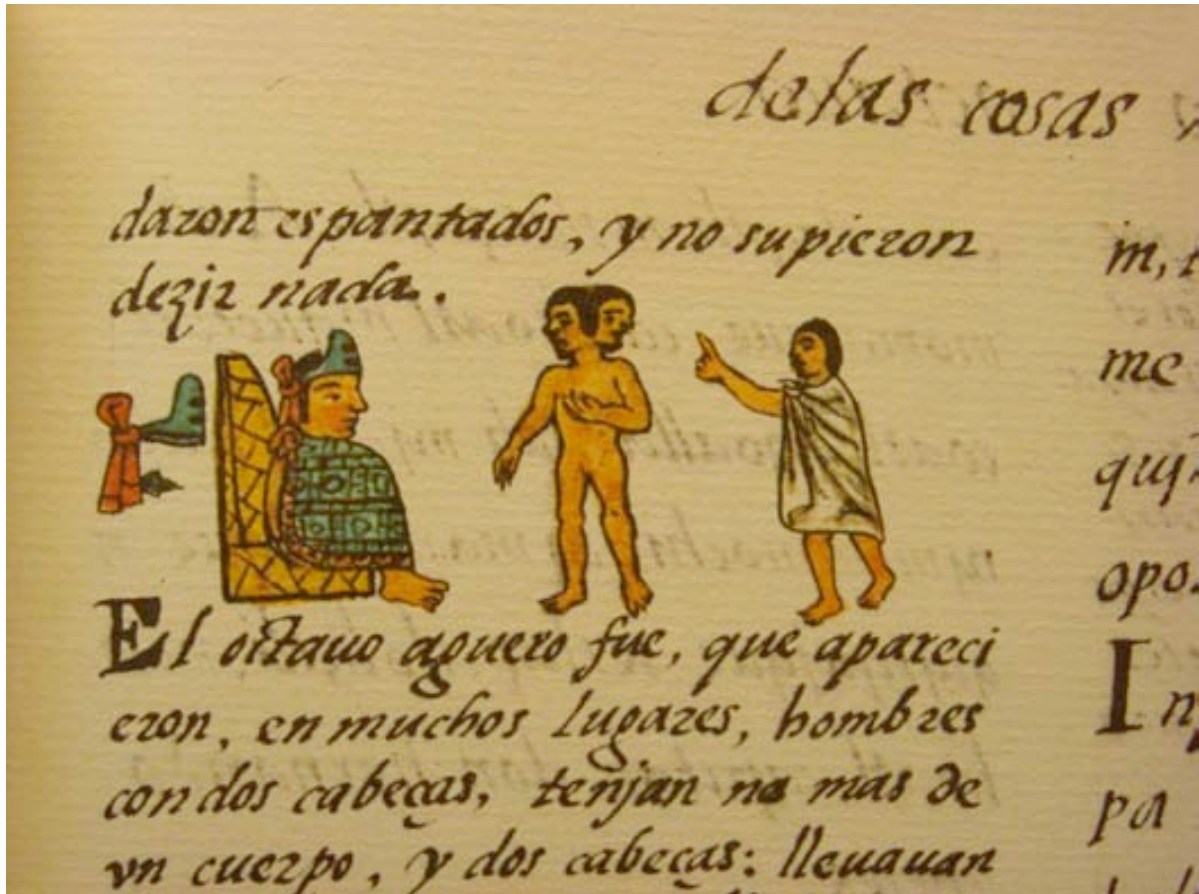 de las cosas
daron espantados, y no supieron
dezir nada.
El octauo aguero fue, que apareci
eron, en muchos lugares, hombres
con dos cabeças, tenjan no mas de
vn cuerpo, y dos cabeças: lleuauan
in,
me
quj
opo
In
pa